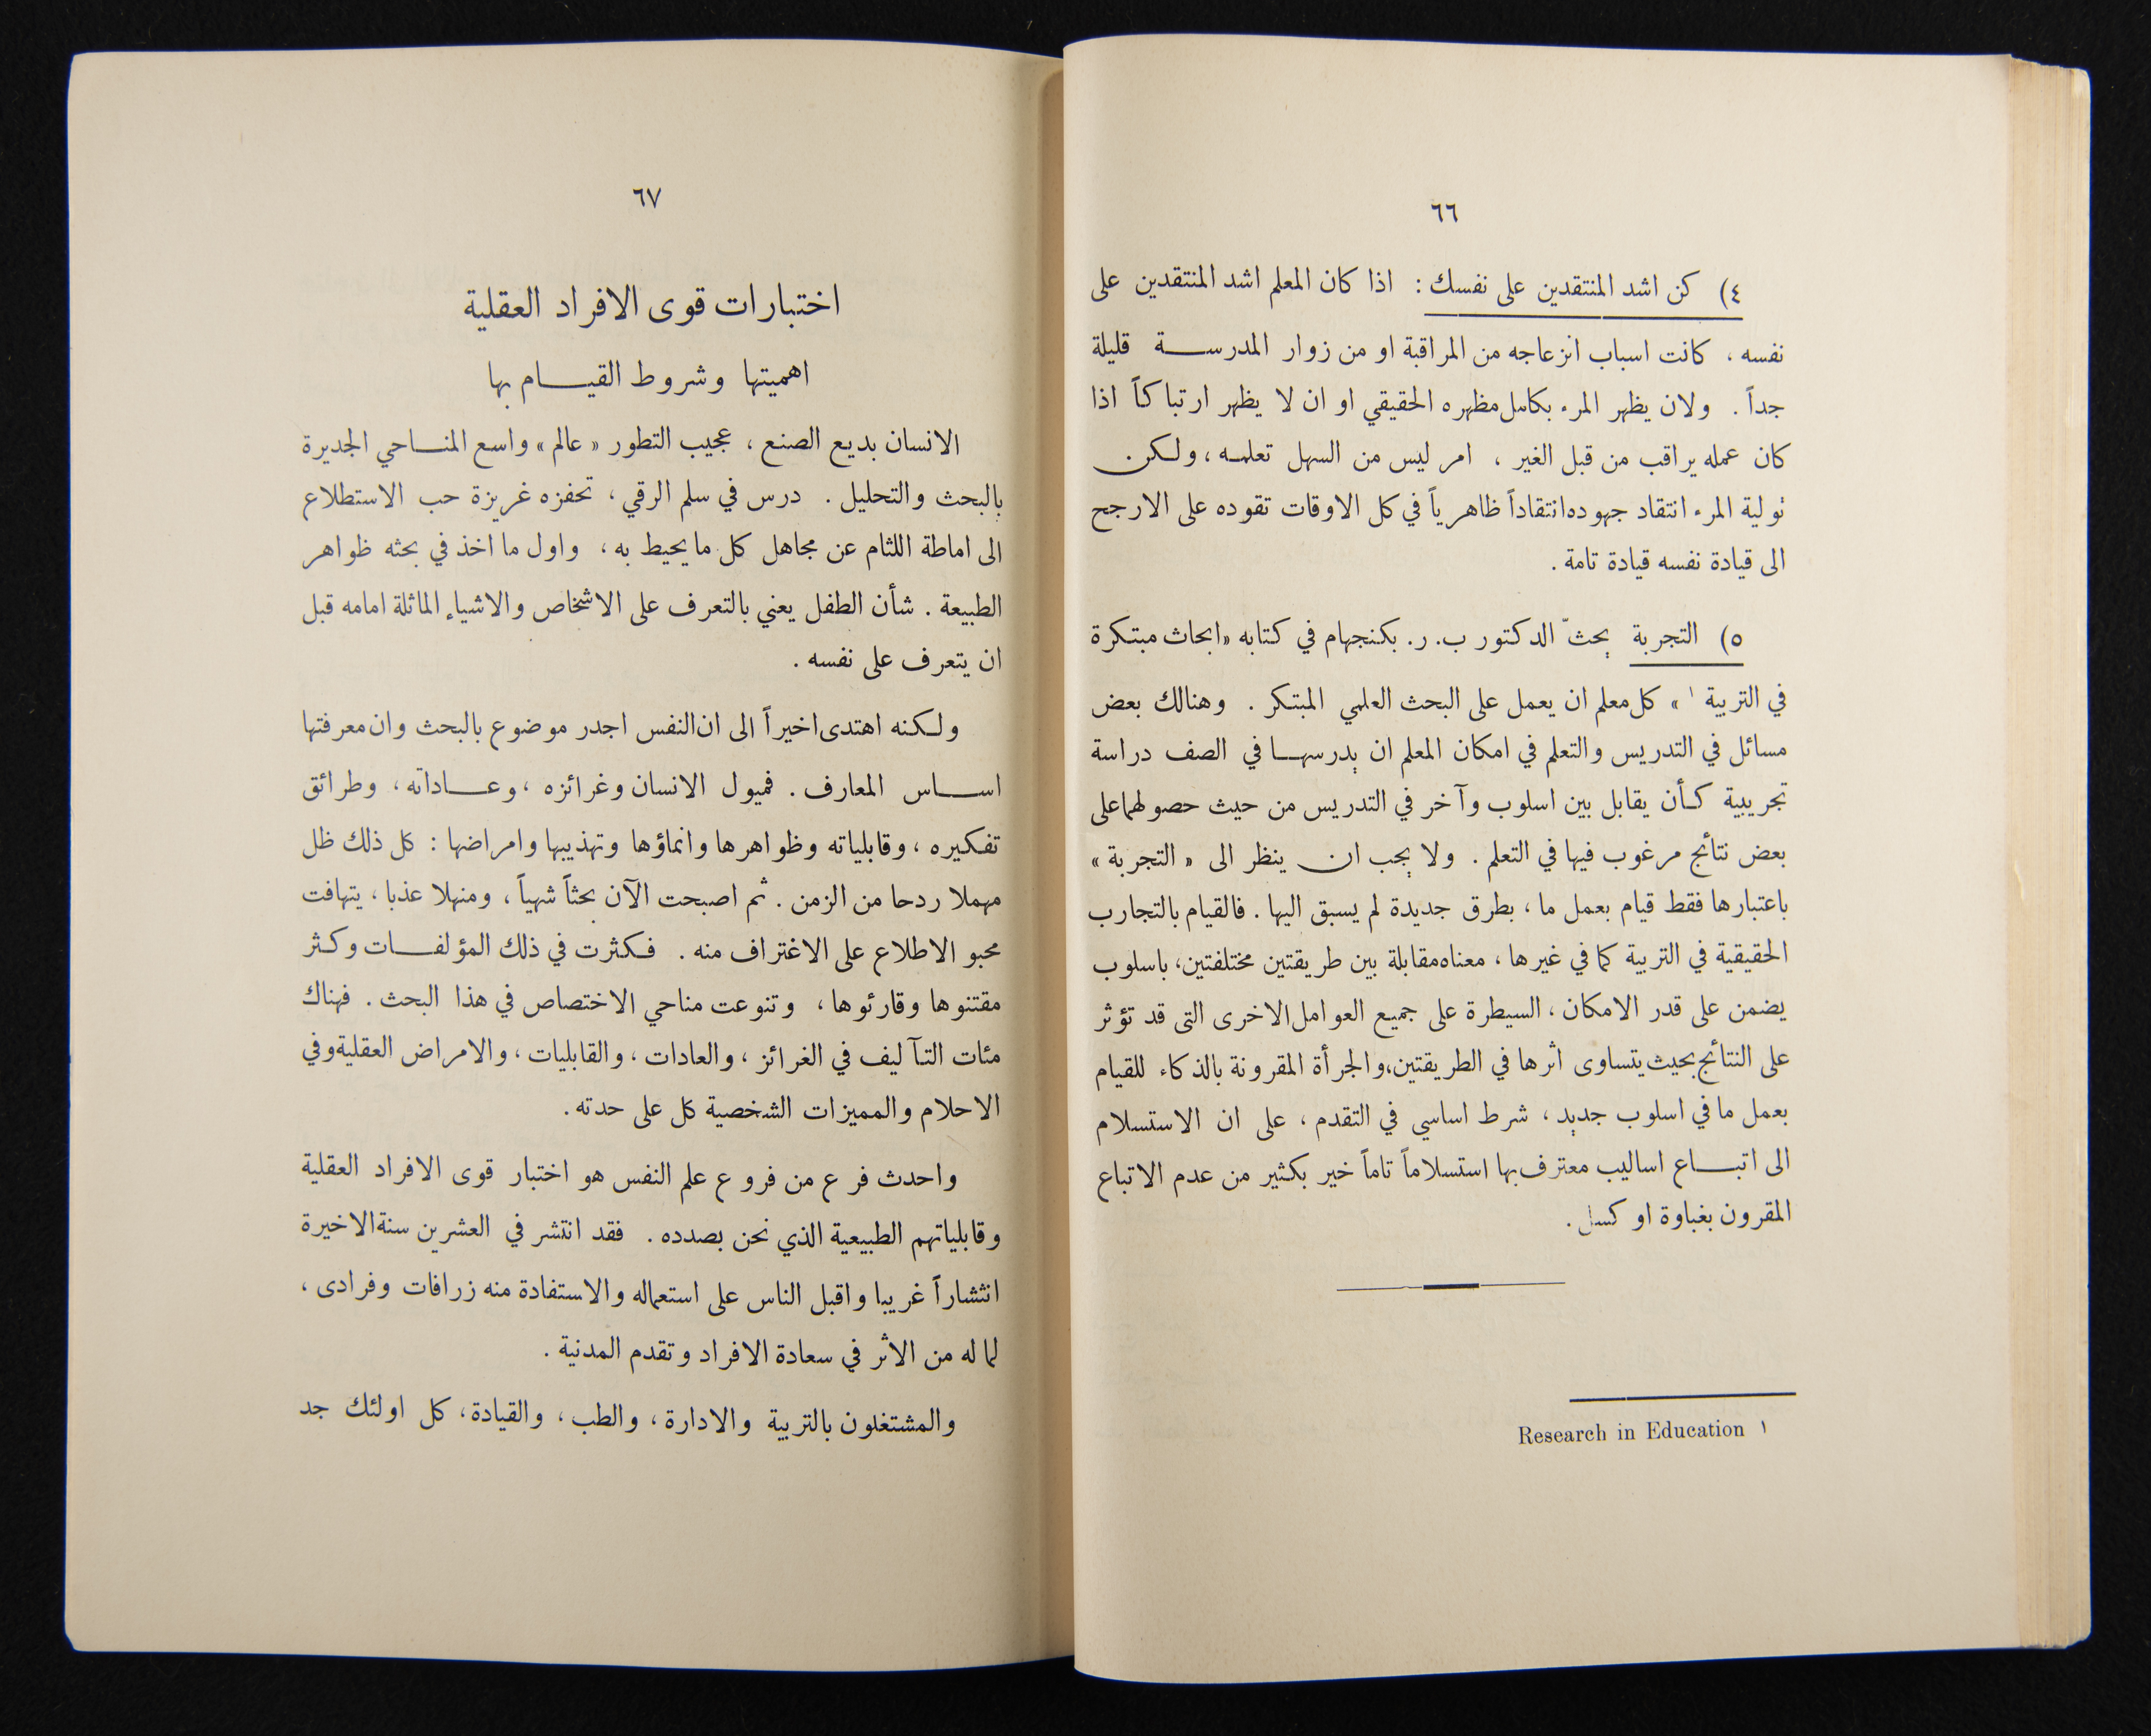 ٦٦
٤) كن اشد المنتقدين على نفسك : اذا كان المعلم اشد المنتقدين على
نفسه ، كانت اسباب انزعاجه من المراقبة او من زوار المدرسة قليلة
جداً . ولان يظهر المرء بكامل مظهره الحقيقي او ان لا يظهر ارتباكاً اذا
كان عمله يراقب من قبل الغير ، امر ليس من السهل تعلمه ، ولكن
تولية المرء انتقاد جهوده انتقاداً ظاهرياً في كل الاوقات تقوده على الارجح
الى قيادة نفسه قيادة تامة .
٥) التجربة يحثّ الدكتور ب. ر. بكنجهام في كتابه «ابحاث مبتكرة
في التربية ١ » كل معلم ان يعمل على البحث العلمي المبتكر . وهنالك بعض
مسائل في التدريس والتعلم في امكان المعلم ان يدرسها في الصف دراسة
تجريبية كأن يقابل بين اسلوب وآخر في التدريس من حيث حصولهما على
بعض نتائج مرغوب فيها في التعلم . ولا يجب ان ينظر الى « التجربة »
باعتبارها فقط قيام بعمل ما ، بطرق جديدة لم يسبق اليها . فالقيام بالتجارب
الحقيقية في التربية كما في غيرها ، معناه مقابلة بين طريقتين مختلفتين، باسلوب
يضمن على قدر الامكان ، السيطرة على جميع العوامل الاخرى التى قد تؤثر
على النتائج بحيث يتساوى اثرها في الطريقتين، والجرأة المقرونة بالذكاء للقيام
بعمل ما في اسلوب جديد ، شرط اساسي في التقدم ، على ان الاستسلام
الى اتباع اساليب معترف بها استسلاماً تاماً خير بكثير من عدم الاتباع
المقرون بغباوة او كسل .
١ Research in Education
٦٧
اختبارات قوى الافراد العقلية
اهميتها وشروط القيام بها
الانسان بديع الصنع ، عجيب التطور « عالم » واسع المناحي الجديرة
بالبحث والتحليل . درس في سلم الرقي ، تحفزه غريزة حب الاستطلاع
الى اماطة اللثام عن مجاهل كل ما يحيط به ، واول ما اخذ في بحثه ظواهر
الطبيعة . شأن الطفل يعني بالتعرف على الاشخاص والاشياء الماثلة امامه قبل
ان يتعرف على نفسه .
ولكنه اهتدى اخيراً الى ان النفس اجدر موضوع بالبحث وان معرفتها
اساس المعارف . فميول الانسان وغرائزه ، وعاداته ، وطرائق
تفكيره ، وقابلياته وظواهرها وانماؤها وتهذيبها وامراضها : كل ذلك ظل
مهملا ردحا من الزمن . ثم اصبحت الآن بحثاً شهياً ، ومنهلا عذبا ، يتهافت
محبو الاطلاع على الاغتراف منه . فكثرت في ذلك المؤلفات وكثر
مقتنوها وقارئوها ، وتنوعت مناحي الاختصاص في هذا البحث . فهناك
مئات التآليف في الغرائز ، والعادات ، والقابليات ، والامراض العقلية وفي
الاحلام والمميزات الشخصية كل على حدته .
واحدث فرع من فروع علم النفس هو اختبار قوى الافراد العقلية
وقابلياتهم الطبيعية الذي نحن بصدده . فقد انتشر في العشرين سنة الاخيرة
انتشاراً غريبا واقبل الناس على استعماله والاستفادة منه زرافات وفرادى ،
لما له من الاثر في سعادة الافراد وتقدم المدنية .
والمشتغلون بالتربية والادارة ، والطب ، والقيادة ، كل اولئك جد